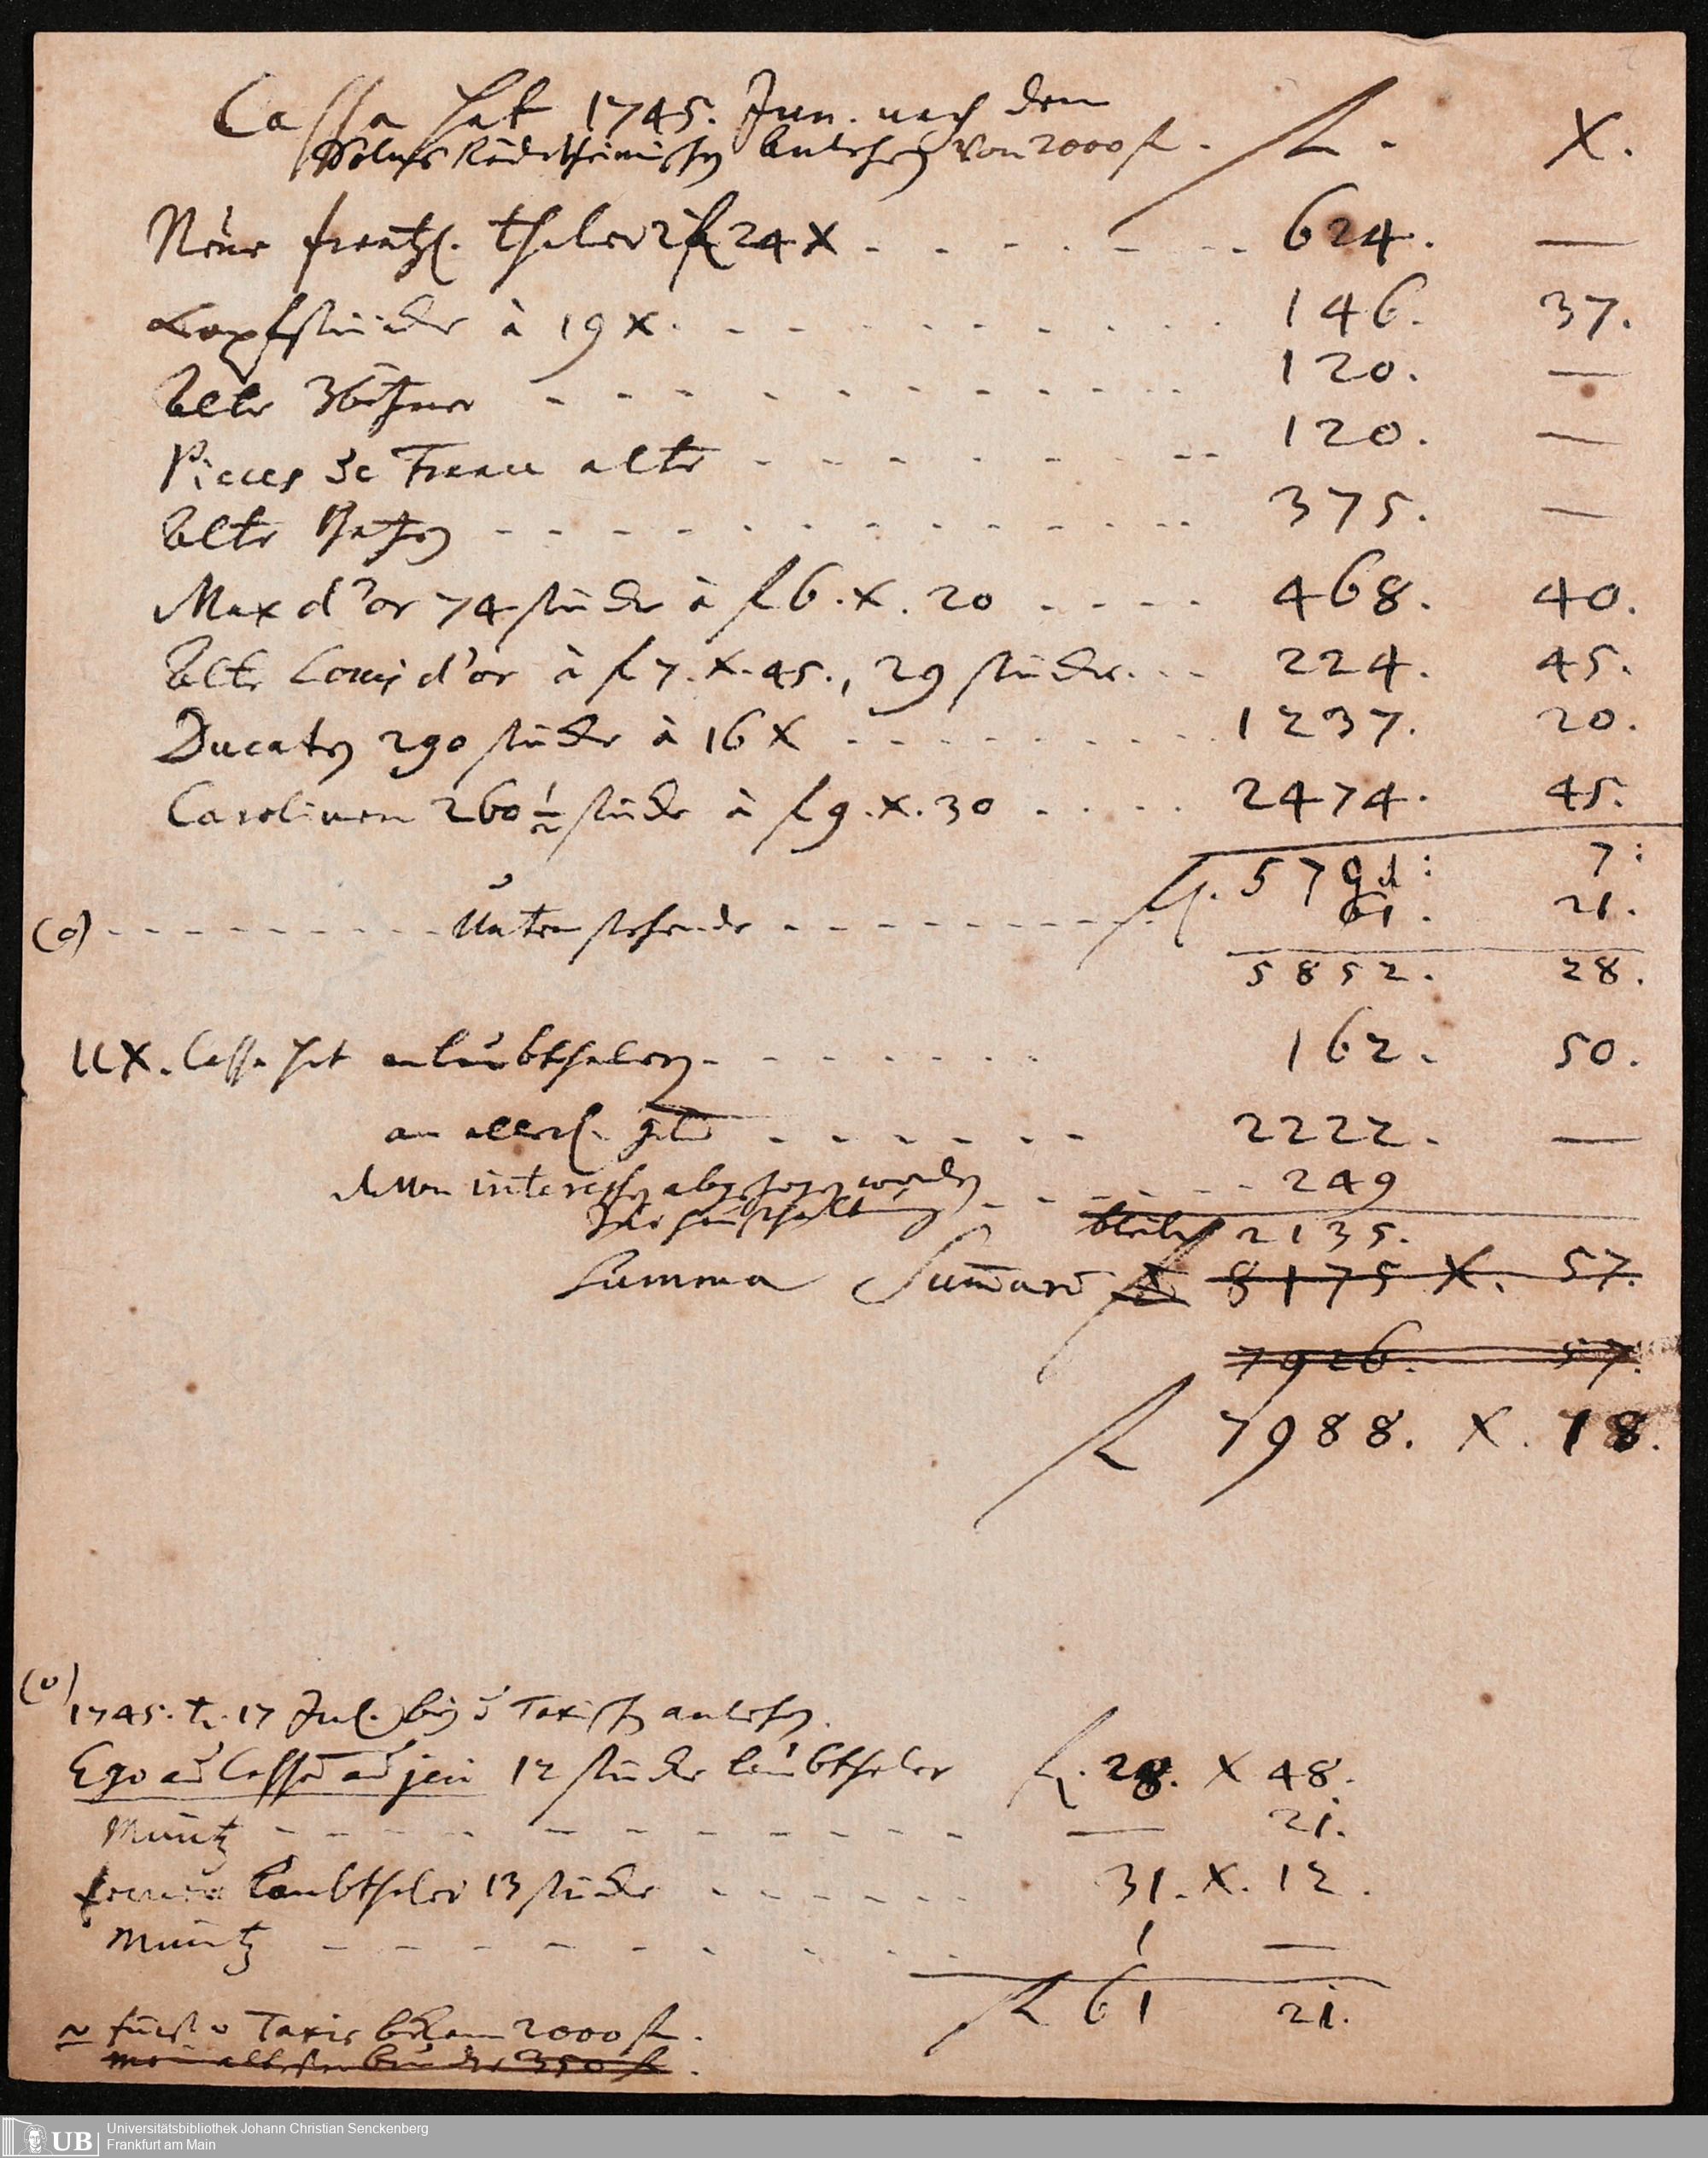 Cassa hat 1745. Jun. nach dem
Solms Rödelheimischen Anlehen von 2000 fl. fl. X.
Neue frantzh. thaler 2 fl 24 X - - - - - - 624. —
Kopfstücke à 19 X. - - - - - - - - - 146. 37.
Alte - - - - - - - - - - 120. —
Pieces de France alte - - - - - - - 120. —
Alte Batzen - - - - - - - - - - - 375. —
Max d'or 74 stücke à fl 6. X. 20 - - - - 468. 40.
Alte Louis d'or à fl 7. X. 45., 29 stücke. - - 224. 45.
Ducaten 290 stücke à 16 X - - - - - - - 1237. 20.
Carolinen 260 1/2 stücke à fl 9. X. 30 - - - - 2474. 45.
fl. 5791: 7:
- - - - - - - - Untenstehende - - - - - - - - 61. 21.
5852. 28.
UX. Cassa hat an laubthalern - - - - - - 162. 50.
an allerh. geld - - - - - - 2222. —
interessen abgezogen werden
haußhaltung - - - - - - 249
bleibt 2135.
Summa Summarum fl 8175 X. 57.
7926. 57.
fl 7988. X. 18.
1745. d. 17 Jul. bey Taxischen anlehen.
Ego ad Cassam 12 stücke laubthaler fl. 28. X 48.
Müntz - - - - - - - - - - — 21.
laubthaler 13 stücke - - - - - - 31. X. 12.
Müntz - - - - - - - - - 1 —
fl 61 21.
Fürst v Taxis bekam 2000 fl.
350 fl.
Universitätsbibliothek Johann Christian Senckenberg
UB Frankfurt am Main